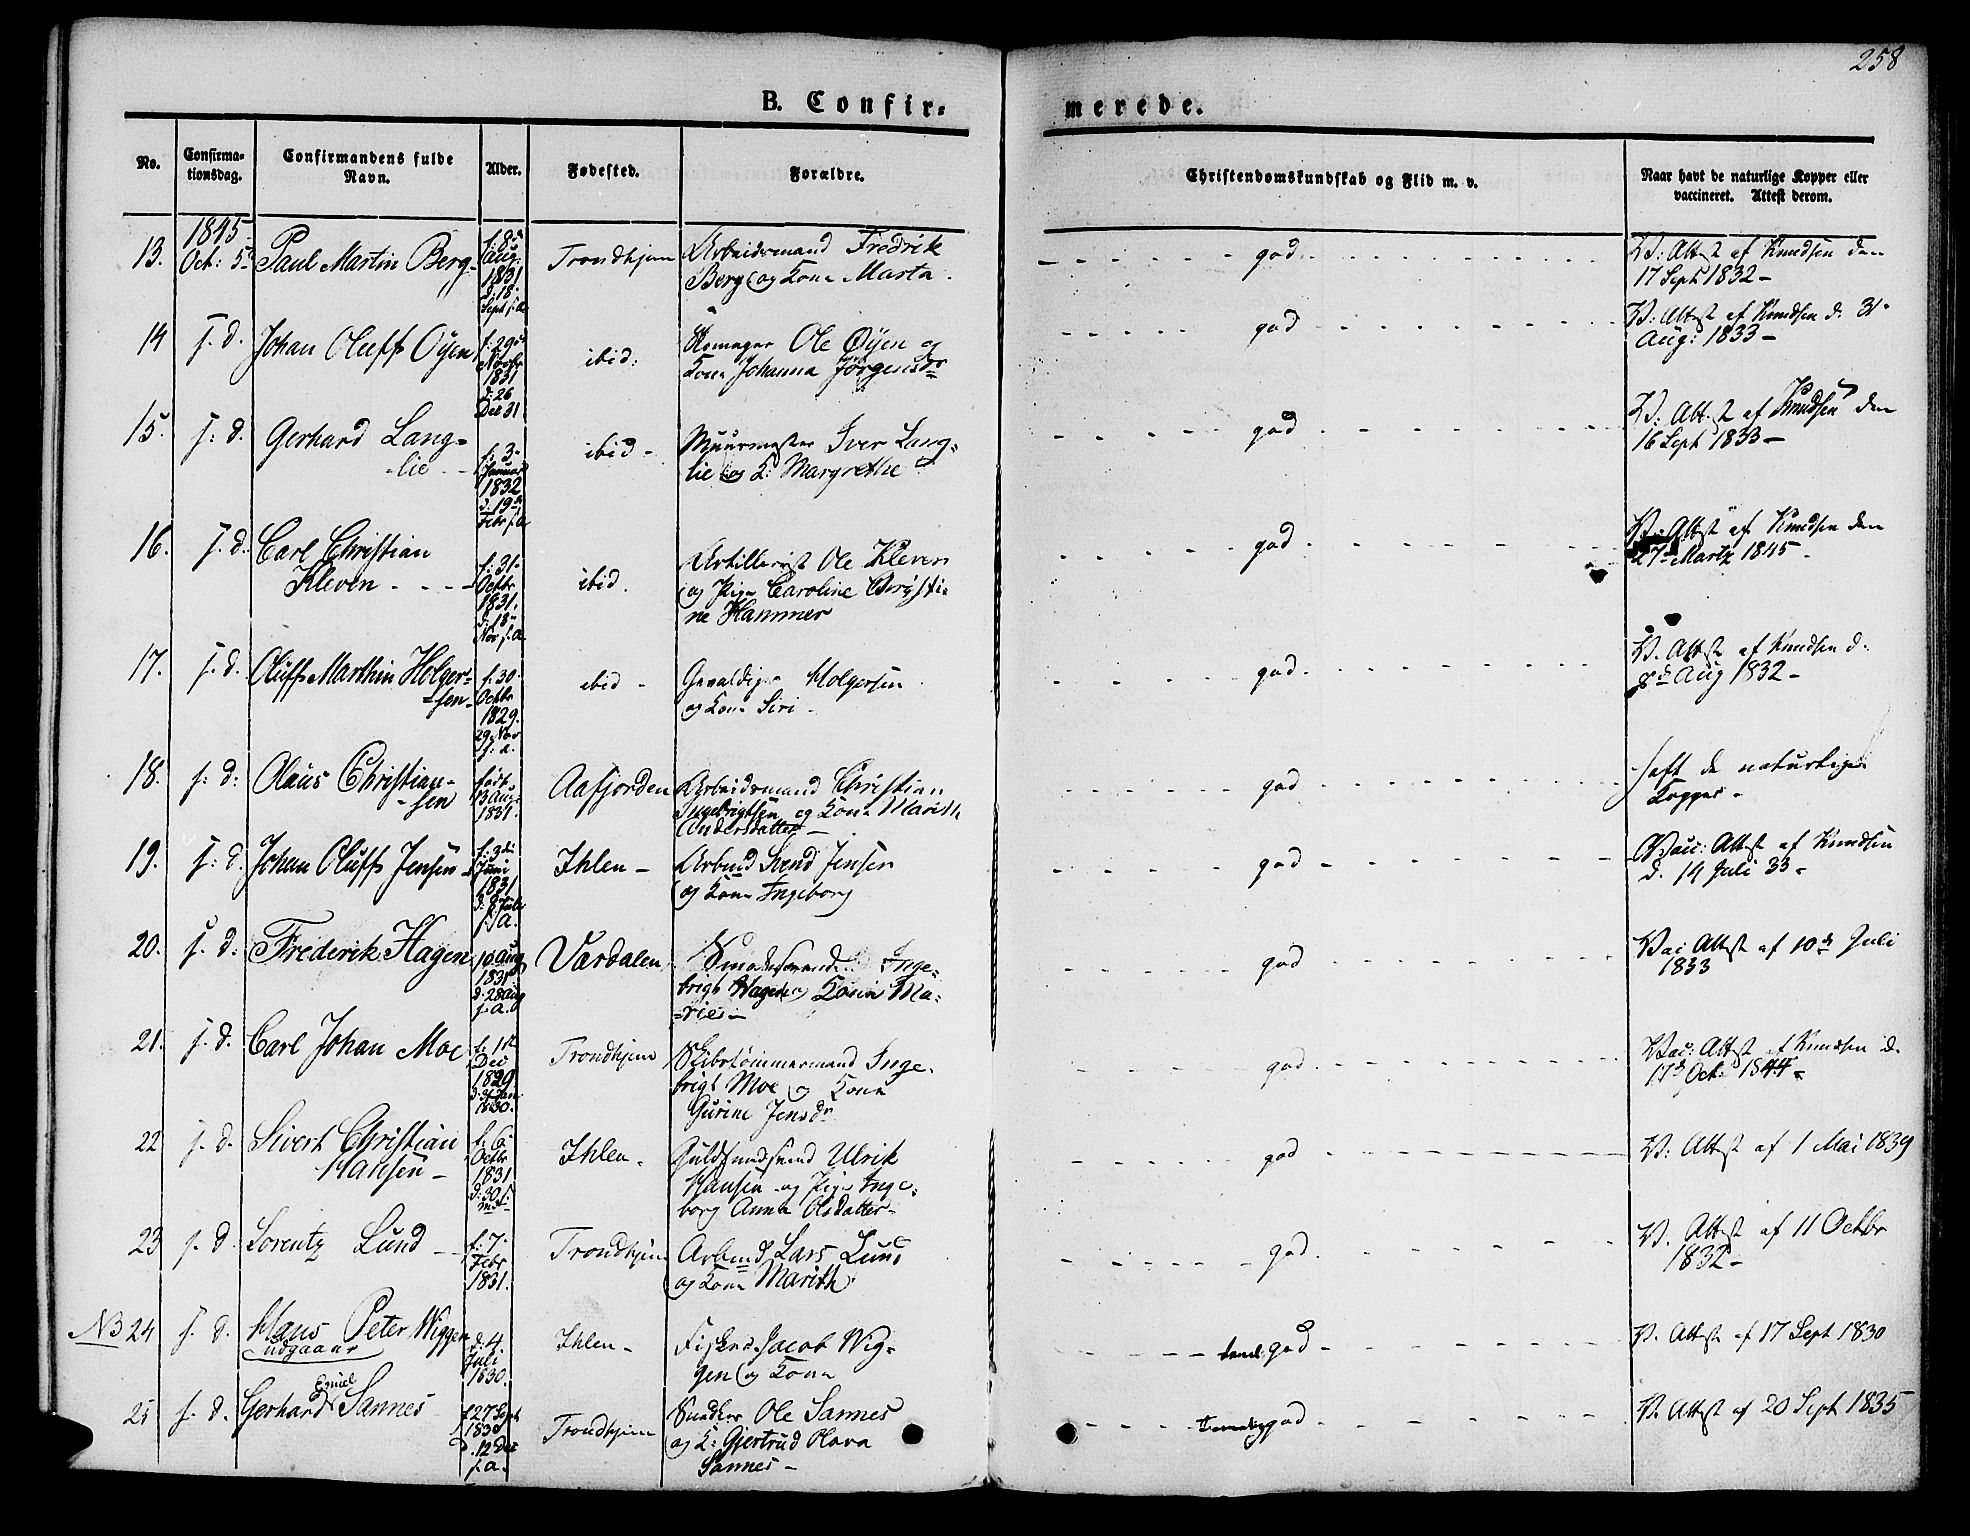 258
B. Confir=
merede.
No.
Confirma=
tionsdag.
Confirmandens fulde
Navn.
Alder.
Fødested.
Forældre.
Christendomskundskab og Flid m. v.
Naar havt de naturlige Kopper eller
vaccineret. Attest derom.
1845
13. Oct: 5 Paul Martin Berg
f: 8
Aug:
1831
d: 18
Sept s. a.
Trondhjem
Arbeidsmand Fredrik
Berg og Kone Marta
god
V: Attst af Knudsen den
17 Sept 1832
14 s. d. Johan Oluff Öyen
f: 29
Novbr
1831
d: 26
Dec 31
ibid:
Ole Öyen og
Kone Johanna Jörgensdr
god
V: Attst af Knudsen d. 31
Aug: 1833
15. s: d. Gerhard Lang=
lie
f: 3
Januar
1832
d: 19
Febr s. a
ibid
Muurmester Iver Lang=
lie og K: Margrethe
god
V: Attst af Knudsen den
16 Sept 1833
16. s. d. Carl Christian
Kleven
f: 31
Octbr
1831.
d: 18
Nov s. a
ibid.
Artillerist Ole Kleven
og Pige Caroline Christi=
ne Hammer
god
V: Attst af Knudsen den
27 Martz 1845
17. s. d. Oluff Marthin Holger=
sen
f. 30
Octbr
1829.
29 Nov
s: a.
ibid
Gevaldiger Holgersen
og Kone Siri
god
V. Attst af Knudsen d.
8 Aug 1832
18. s: d: Olaus Christian=
sen
født
13 Aug
1831.
Aafjorden
Arbeidsmand Christian
Ingebrigtsen og Kone Marith
Andersdatter
god
haft de naturlige
Kopper
19. s: d. Johan Oluff Jensen
f: 3di
Juni
1831
d: 8 Juli
s. a.
Ihlen
Arbmd Svend Jensen
og Kone Ingeborg
god
Vaic: Attst af Knudsen
d. 14 Juli 33
20. s. d: Frederik Hagen
10 Aug
1831
d: 28 Aug
s. a.
Værdalen
Inge=
brigt Hagen Kone Ma=
rie
god
Vai Attst af 10de Juli
1833
21. s. d. Carl Johan Moe
f: 1st
Dec
1829
d: Jan
1830.
Trondhjem
Skibstömmermand Inge=
brigt Moe og Kone
Gurine Jensdr
god
Vac: Attst af Knudsen d.
17d Oct: 1844
22 s. d. Sivert Christian
Hansen
f. 6
Octbr
1831
d: 30 s:
mt
Ihlen
Guldsmedsvend Ulrik
Hansen og Pige Inge=
borg Anna Olsdatter
god
V: Attst af 1 Mai 1839
23 s. d. Lorentz Lund
f: 7
Febr
1831.
Trondhjem
Arbmd Lars Lund
og Kone Marith
god
V. Attst af 11 Octbr
1832
NB 24 s. d. Hans Peter Wiggen
udgaaer
d: 4.
Juli
1830.
Ihlen
Fisker Jacob Wig=
gen og Kone
temel: god
V. Attst af 17 Sept 1830
25 s. d. Gerhard Emiel Sannes
f 27 Sept
1830
d. 12 Dec
s. a.
Trondhjem
Snedker Ole Sannes
og K: Gjertrud Olava
Sannes
temelig god
V. Attst af 20 Sept 1835